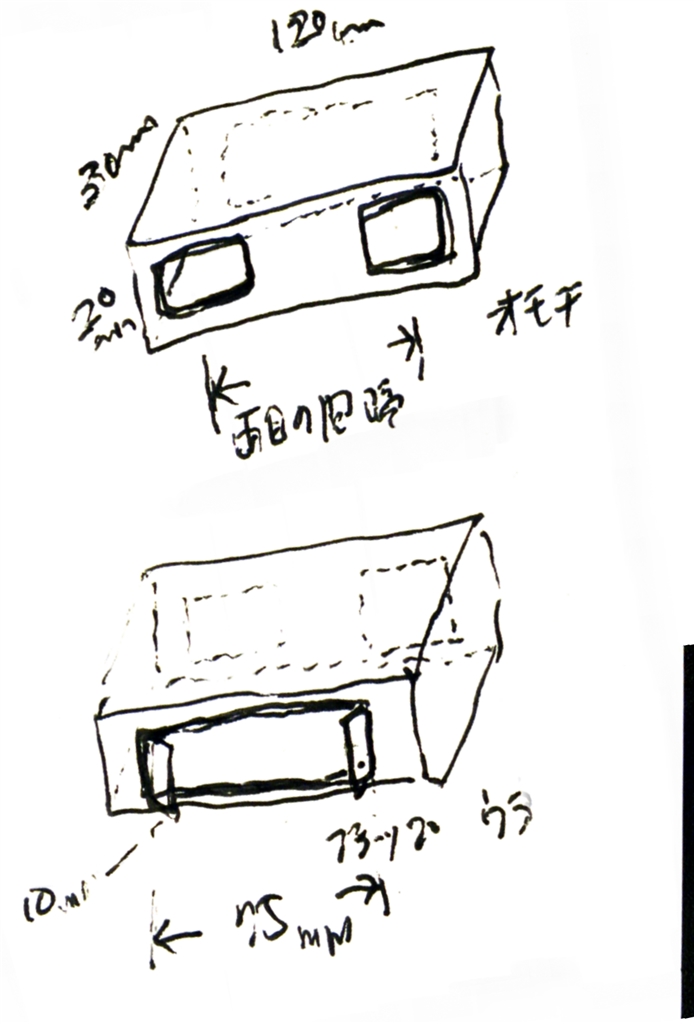 120mm
30mm
20
mm
オモテ
両目の間隔
ウラ
10mm
75mm